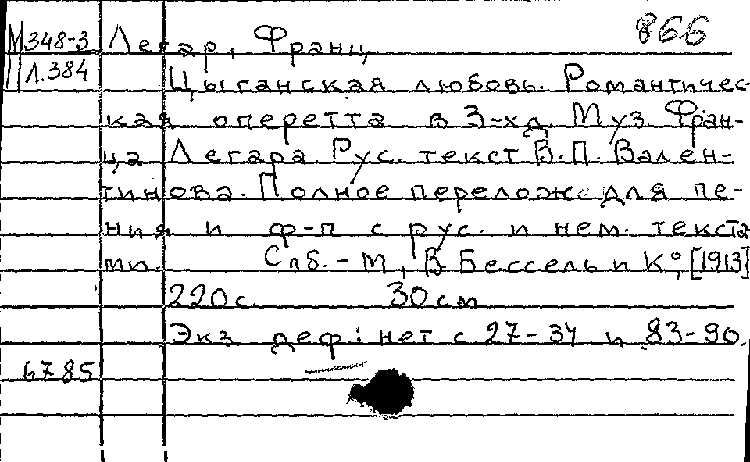 866
М348-3 Легар, Франц
Л.384 Цыганская любовь. Романтичес-
кая оперетта в 3-х д. Муз. Фран-
ца Легара. Рус. текст В.П. Вален-
тинова. Полное перелож. для пе-
ния и ф-п с рус. и нем. текста
ми. Спб. - М, В. Бессель и К°, [1913]
220 с. 30 см
Экз. деф: нет с 27-34 и 83-90.
6785